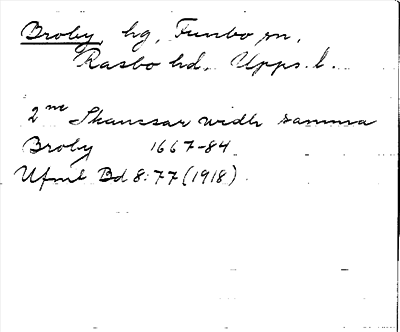 Broby, hg, Funbo sn,
Rasbo hd, Upps. l.
2ne Skanssar widh samma
Broby 1667-84
Ufmt Bd 8:77 (1918)